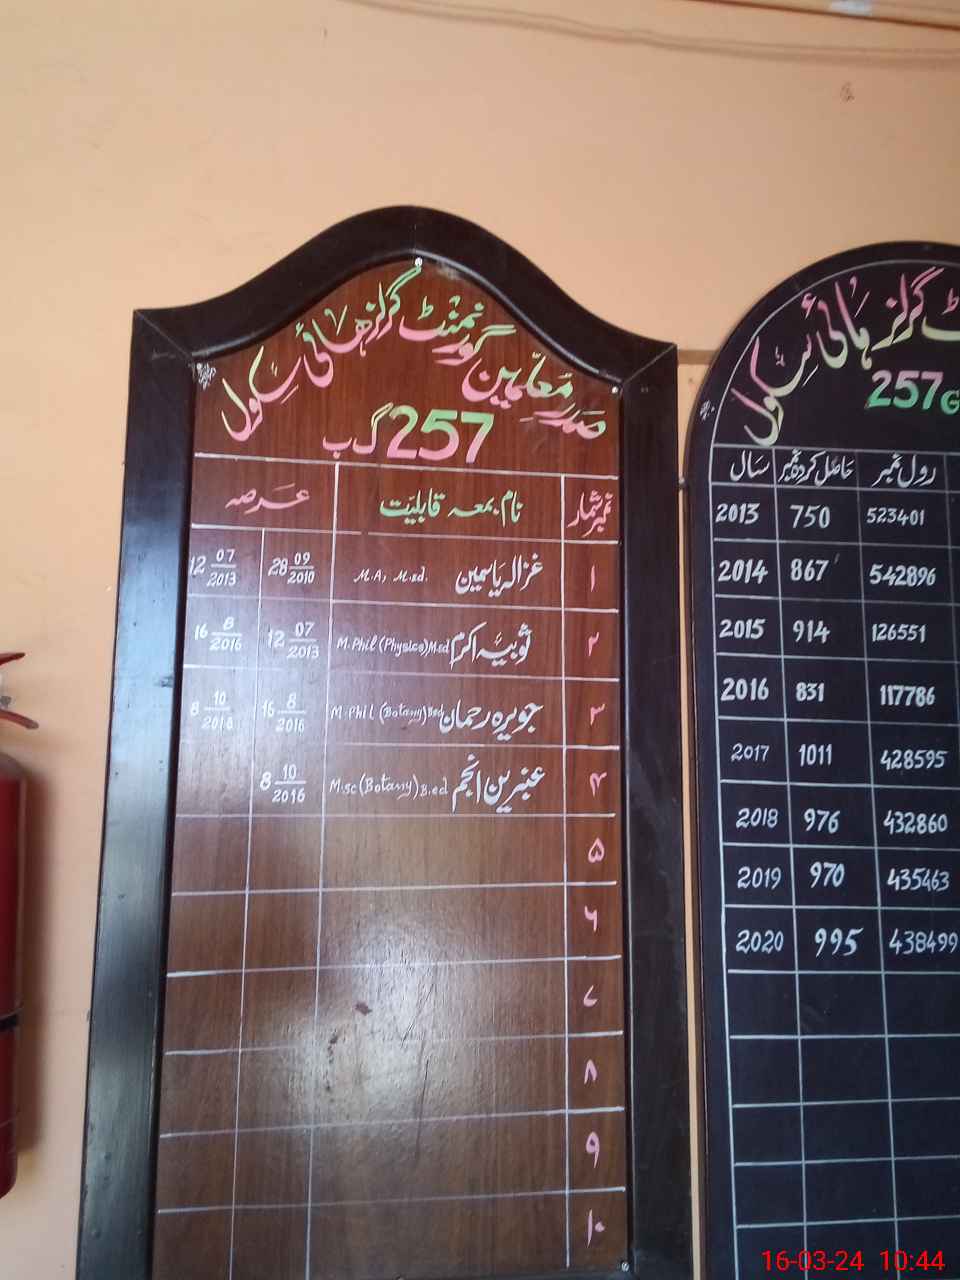 صدر معلمین گورنمنٹ گرلز ھائی سکول
257 گ ب
نمبر شمار نام بمعہ قابلیت عرصہ
۱ غزالہ یاسمین M.A, M.ed. 28 09/2010 12 07/2013
۲ ثوبیہ اکرم M.Phil (Physics) M.ed 12 07/2013 16 8/2016
۳ جویرہ رحمان M.Phil (Botany) B.ed 16 8/2016 8 10/2016
۴ عنبرین انجم M.sc (Botany) B.ed 8 10/2016
۵
۶
۷
۸
۹
۱۰
گرلز ہائی سکول
257 G
رول نمبر حاصل کردہ نمبر سال
523401 750 2013
542896 867 2014
126551 914 2015
117786 831 2016
428595 1011 2017
432860 976 2018
435463 970 2019
438499 995 2020
16-03-24 10:44